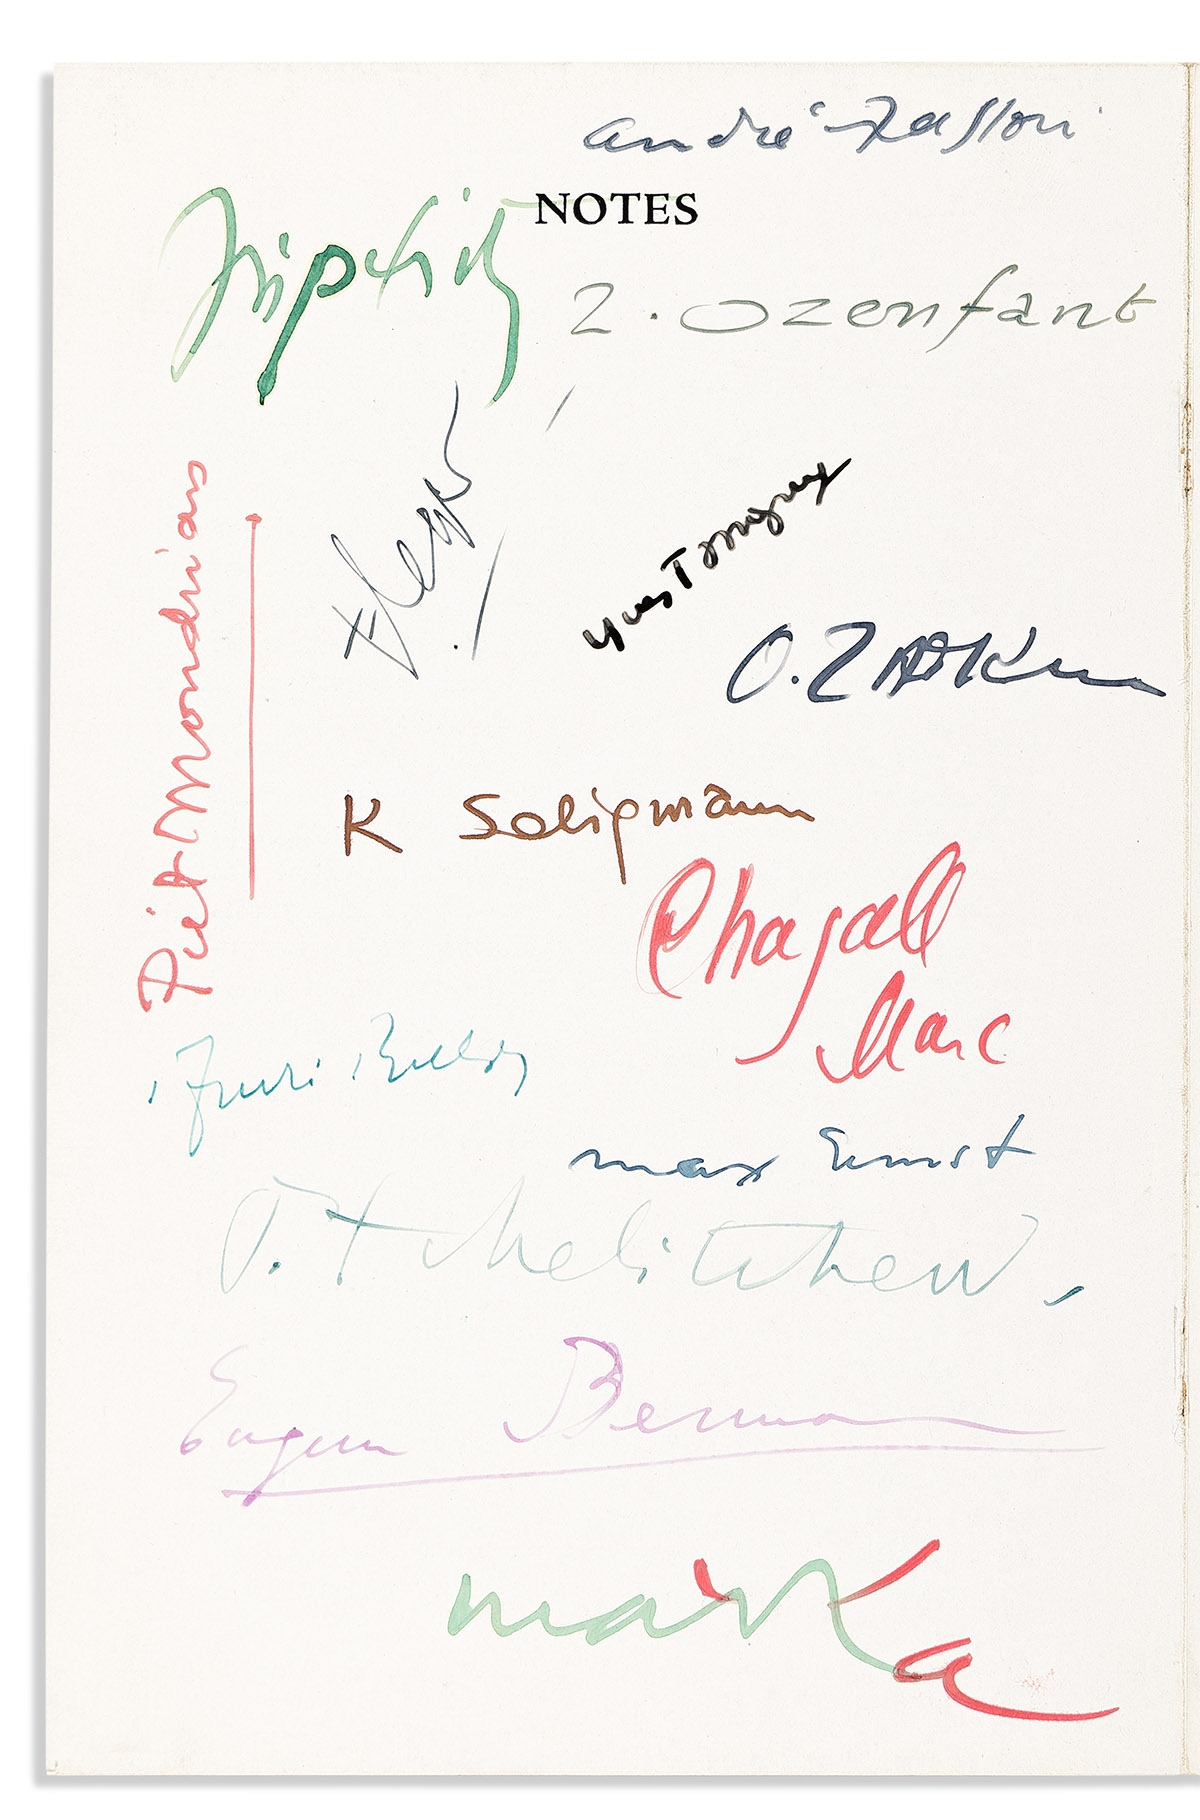 andré Masson
NOTES
Lipchitz
2. Ozenfant
F Leger
Yves Tanguy
O. ZADKine
Piet Mondrian
K Seligmann
Chagall
Marc
max Ernst
P. Tchelitchew,
Eugene Berman